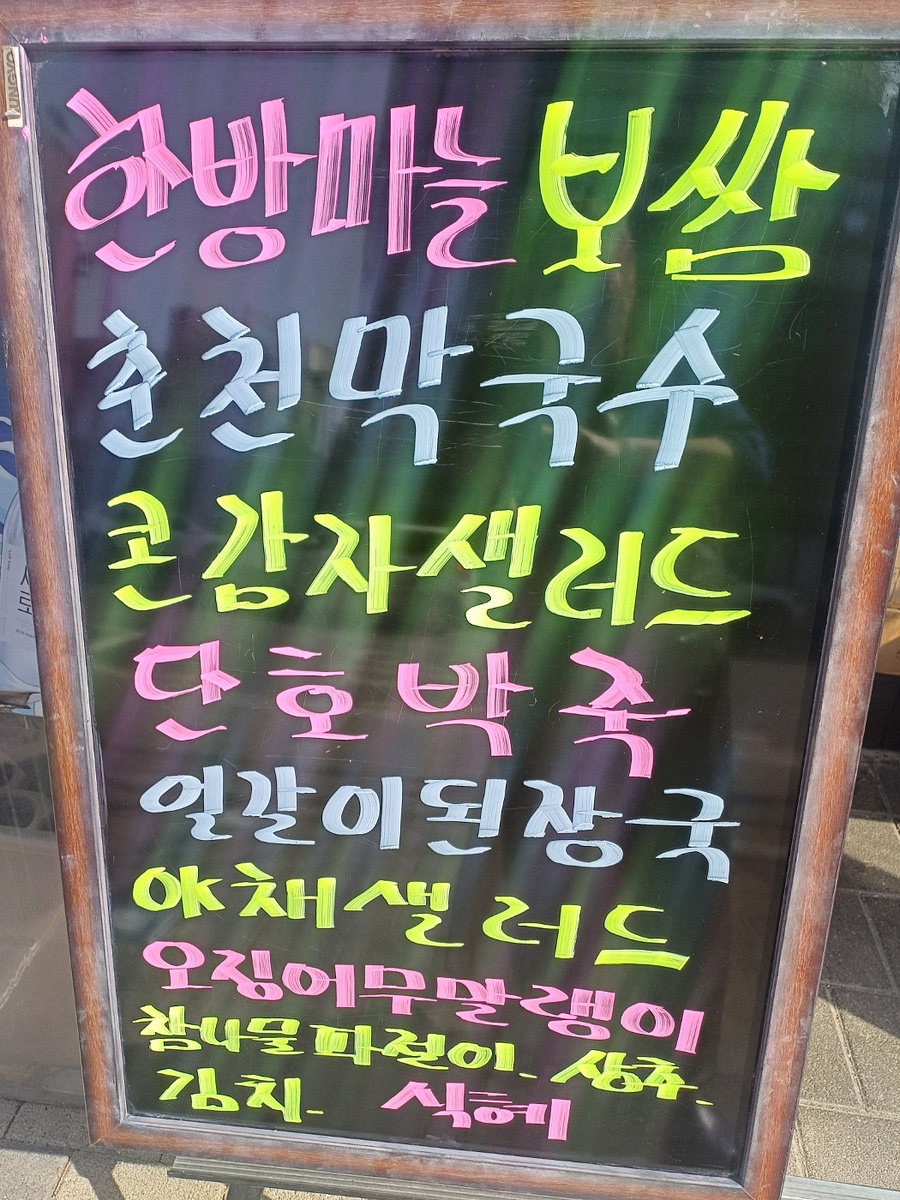 한방마늘 보쌈
춘천막국수
콘감자샐러드
단호박죽
얼갈이된장국
야채샐러드
오징어무말랭이
참나물파절이. 상추.
김치. 식혜